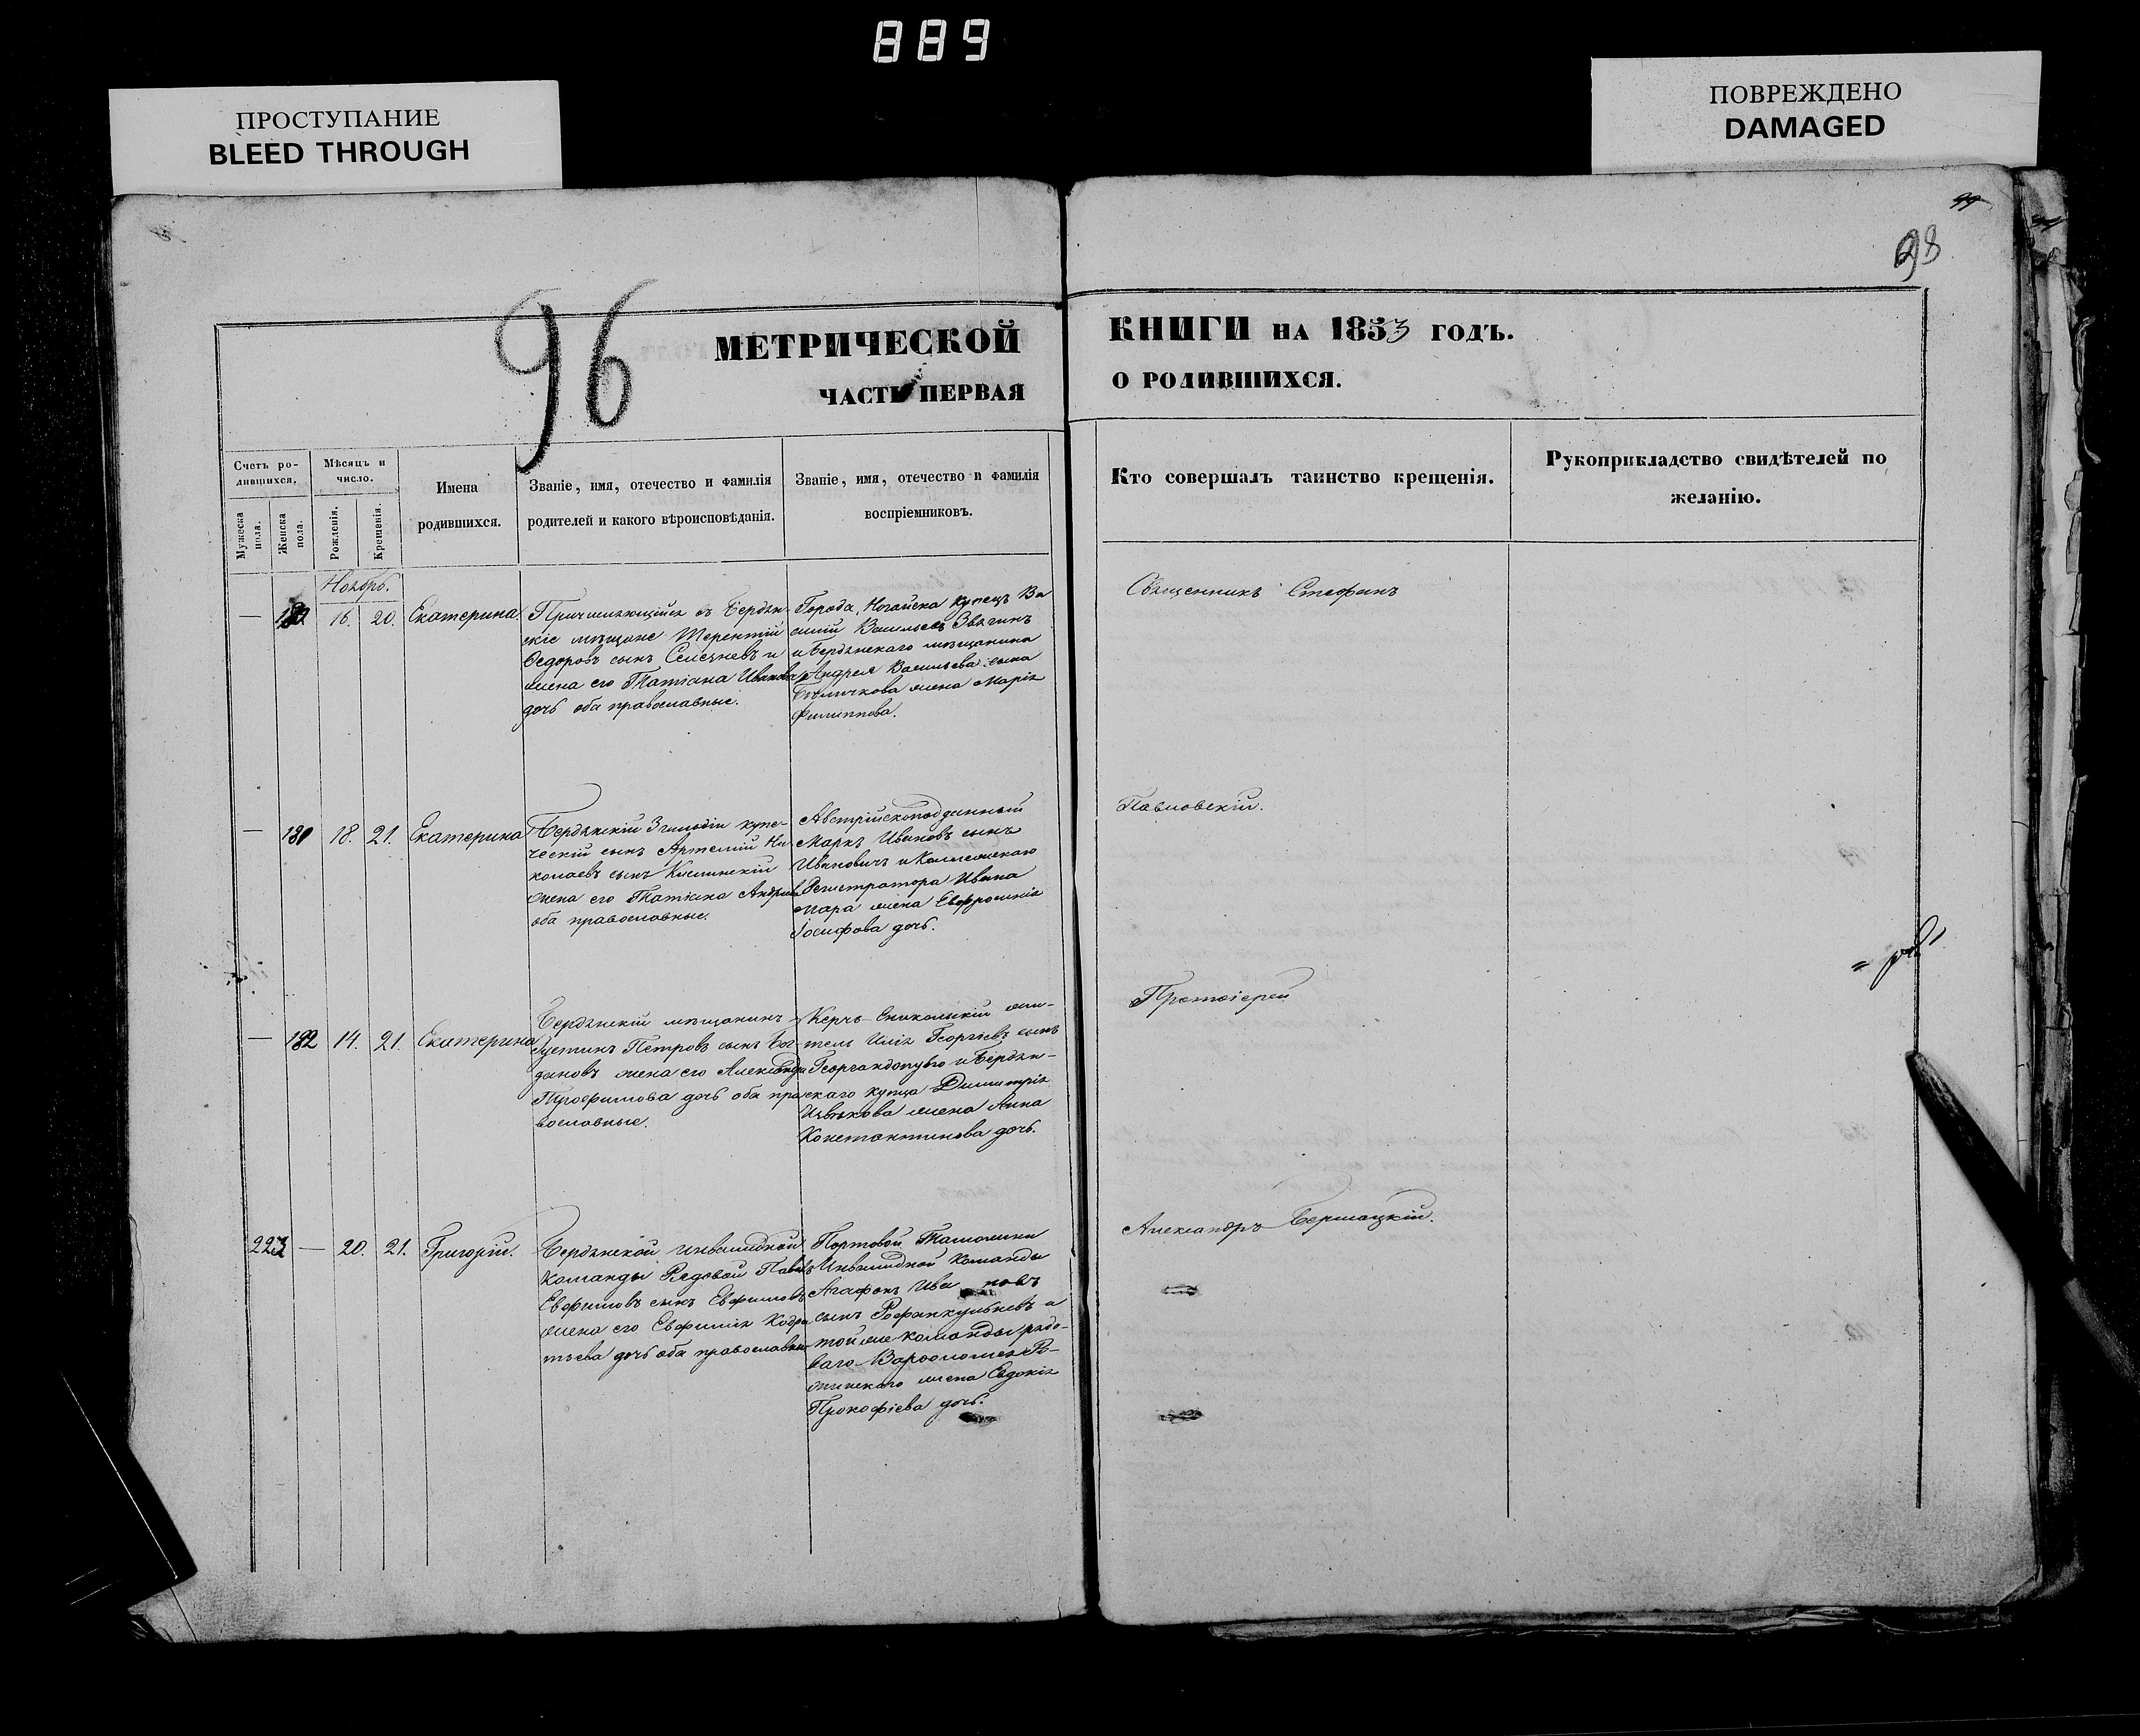 889
ПРОСТУПАНИЕ
BLEED THROUGH
ПОВРЕЖДЕНО
DAMAGED
98
96
МЕТРИЧЕСКОЙ
ЧАСТЬ ПЕРВАЯ
КНИГИ НА 1853 ГОДЪ.
О РОДИВШИХСЯ.
Счетъ ро-
дившихся.
Мужеска
пола.
Женска
пола.
Мѣсяцъ и
число.
Рожденія.
Крещенія.
Имена
родившихся.
Званіе, имя, отечество и фамилія
родителей и какого вѣроисповѣданія.
Званіе, имя, отечество и фамилія
воспріемниковъ.
Кто совершалъ таинство крещенія.
Рукоприкладство свидѣтелей по
желанію.
Ноябрь.
— 16. 20. Екатерина
Причисляющійся въ Бердян-
скіе мѣщане Терентій
Ѳедоровъ сынъ и
жена его Татіана Иванова
дочь оба православные.
Города Ногайска купецъ Ва
силій Васильевъ Звягинъ
и Бердянскаго мѣщанина
Андрея Васильева сына
жена Марія
Филиппова.
Священникъ Стефанъ
— 181 18. 21. Екатерина
Бердянскій 3 гильдіи купе-
ческій сынъ Артемій Ни
колаевъ сынъ
жена его Татіана
оба православные.
Австрійскоподданный
Марко Ивановъ сынъ
Ивановичъ и Коллежскаго
Регистратора Ивана
жена Евфросинія
Іосифова дочь.
Павловскій.
— 182 14. 21. Екатерина
Бердянскій мѣщанинъ
Петровъ сынъ Бог-
дановъ жена его Александра
Трофимова дочь оба пра
вославные.
Керчь-Еникольскій жи-
тель Илія Георгіевъ сынъ
и Бердян-
скаго купца Димитрія
жена Анна
Константинова дочь.
Протоіерей
223 — 20. 21. Григорій.
Бердянской инвалидной
команды Рядовой Павелъ
Евфимовъ сынъ Евфимовъ
жена его Евфимія Кодра
тьева дочь оба православные
Портовой Таможни
Инвалидной Команды
Агафонъ Ива новъ
сынъ и
той же команды рядо-
ваго Варфоломея
жена Евдокія
Прокофіева дочь.
Александръ